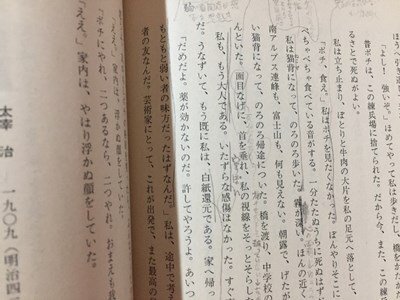 ほうへ引き返し
「よし！　強いぞ。」ほめてやって私は歩きだし、橋をかた
昔ポチは、この練兵場に捨てられた。だから今、また、この練
ることで死ぬがよい。
私は立ち止まり、ぼとりと牛肉の大片を私の足元へ落として、
「ポチ、食え。」私はポチを見たくなかった。ぼんやりそこに
べちゃべちゃ食べている音がする。一分たたぬうちに死ぬはず
私は猫背になって、のろのろ歩いた。霧が深い。ほんの近く
南アルプス連峰も、富士山も、何も見えない。朝露で、げた
い猫背になって、のろのろ帰途についた。橋を渡り、中学校の
んといた。面目なげに、首を垂れ、私の視線をそっとそらし
私も、もう大人である。いたずらな感傷はなかった。すぐ
だ。うなずいて、もう既に私は、白紙還元である。家へ帰
「だめだよ。薬が効かないのだ。許してやろうよ。あいつ
もともと弱い者の味方だったはずなんだ。」私は、途中で考え
者の友なんだ。芸術家にとって、これが出発で、また最高の
「ええ。」家内は、浮かぬ顔をしていた。
「ポチにやれ、二つあるなら、二つやれ。おまえも
「ええ。」家内は、やはり浮かぬ顔をしていた。
太宰　治　一九〇九（明治四